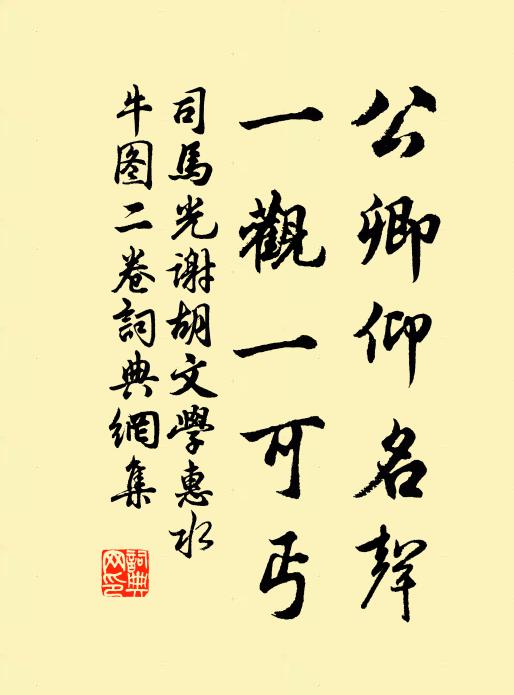 公卿仰名聲
一觀一可丐
司馬光謝胡文學惠水
牛图二卷詞典網集
詞典網印